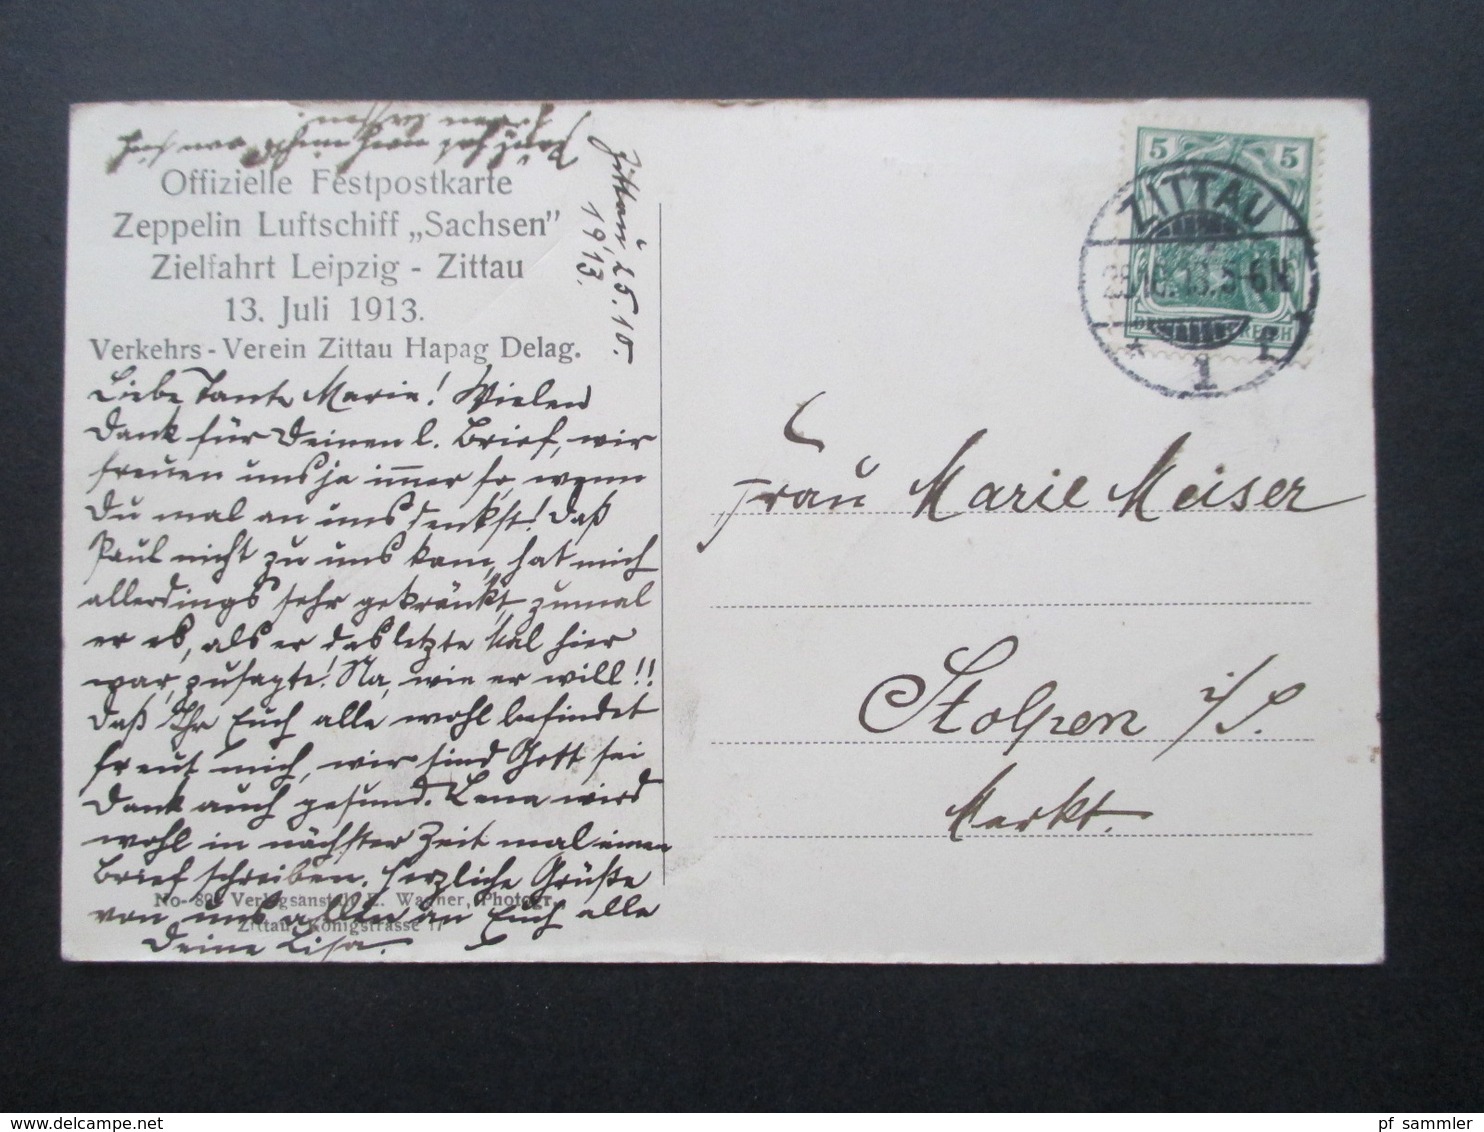 Offizielle Festpostkarte
Zeppelin Luftschiff „Sachsen"
Zielfahrt Leipzig - Zittau
13. Juli 1913.
Verkehrs-Verein Zittau Hapag Delag.
Zittau 25.10.
1913.
Liebe Tante Marie! Vielen
Dank für Deinen l. Brief, wir
freuen uns ja immer so, wenn
Du mal an uns denkst! Daß
Paul nicht zu uns kam, hat mich
allerdings sehr gekränkt, zumal
er es, als er das letzte Mal hier
war, zusagte! Na, wie er will!!
Daß Ihr Euch alle wohl befindet
freut mich, wir sind Gott sei
Dank auch gesund. Lena wird
wohl in nächster Zeit mal einen
Brief schreiben. Herzliche Grüße
von uns allen an Euch alle
Deine Lisa.
No- Verlagsanstalt Wagner, Photogr.
Zittau, Königstrasse 17
5 5
DEUTSCHES REICH
ZITTAU
25.10.13.5-6N
* 1 c
Frau Marie Meiser
Stolpen i/S.
Markt.
pf_sammler